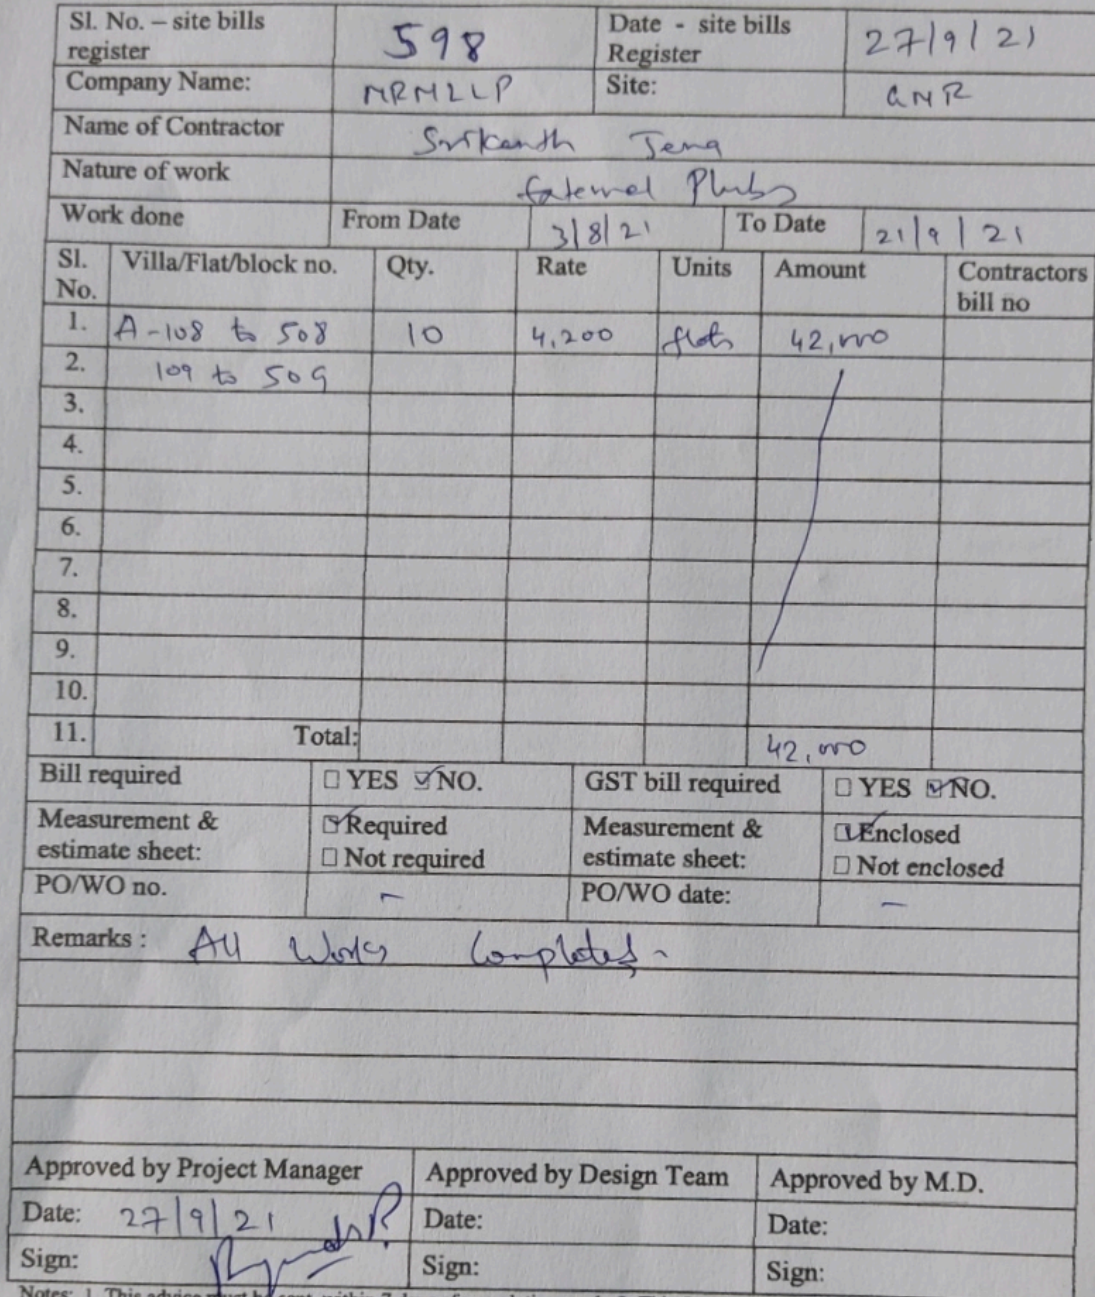 Sl. No. – site bills register 598 Date - site bills Register 27/9/21
Company Name: MRMLLP Site: GMR
Name of Contractor Srikanth Jena
Nature of work External Plumbg
Work done From Date 3/8/21 To Date 21/9/21
Sl. No. Villa/Flat/block no. Qty. Rate Units Amount Contractors bill no
1. A-108 to 508 10 4,200 flats 42,000
2. 109 to 509
3.
4.
5.
6.
7.
8.
9.
10.
11. Total: 42,000
Bill required ☐ YES ☑ NO. GST bill required ☐ YES ☑ NO.
Measurement & estimate sheet: ☑ Required ☐ Not required Measurement & estimate sheet: ☑ Enclosed ☐ Not enclosed
PO/WO no. – PO/WO date: –
Remarks : All Works Completed.
Approved by Project Manager Approved by Design Team Approved by M.D.
Date: 27/9/21 Date: Date:
Sign: Sign: Sign: